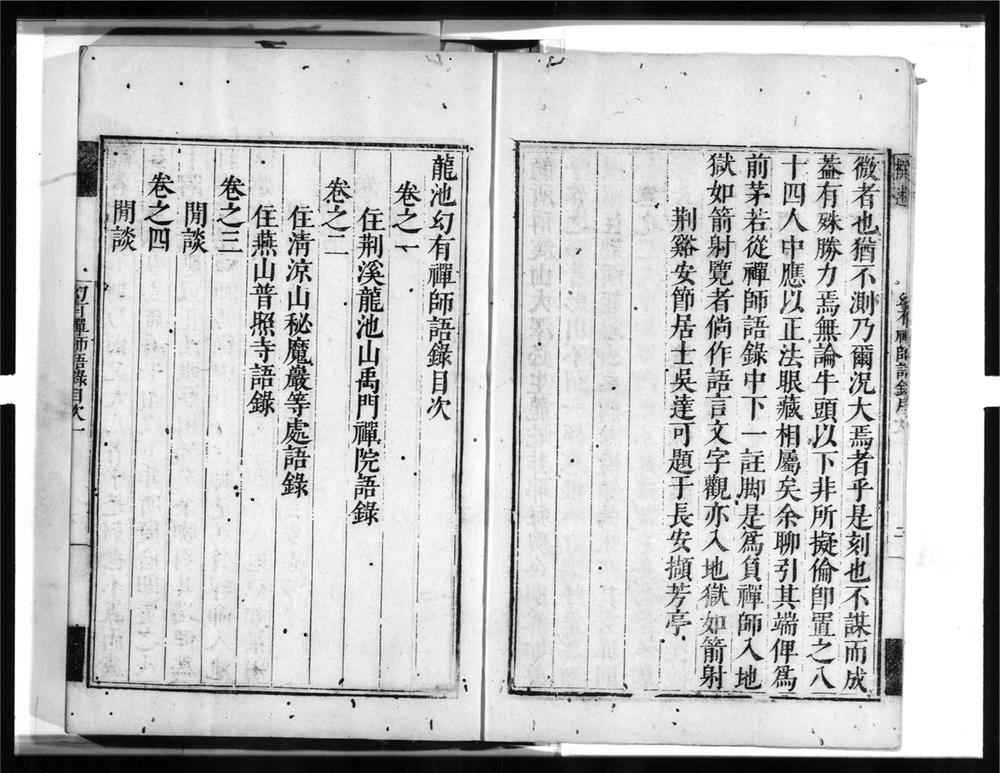 微者也猶不測乃爾況大焉者乎是刻也不謀而成
葢有殊勝力焉無論牛頭以下非所擬倫卽置之八
十四人中應以正法眼藏相屬矣余聊引其端俾爲
前茅若從禪師語錄中下一註脚是爲負禪師入地
獄如箭射覽者倘作語言文字觀亦入地獄如箭射
荆谿安節居士吳達可題于長安擷芳亭
龍池幻有禪師語錄目次
卷之一
住荆溪龍池山禹門禪院語錄
卷之二
住清凉山秘魔巖等處語錄
住燕山普照寺語錄
卷之三
閒談
卷之四
閒談
幻有禪師語錄目次 一